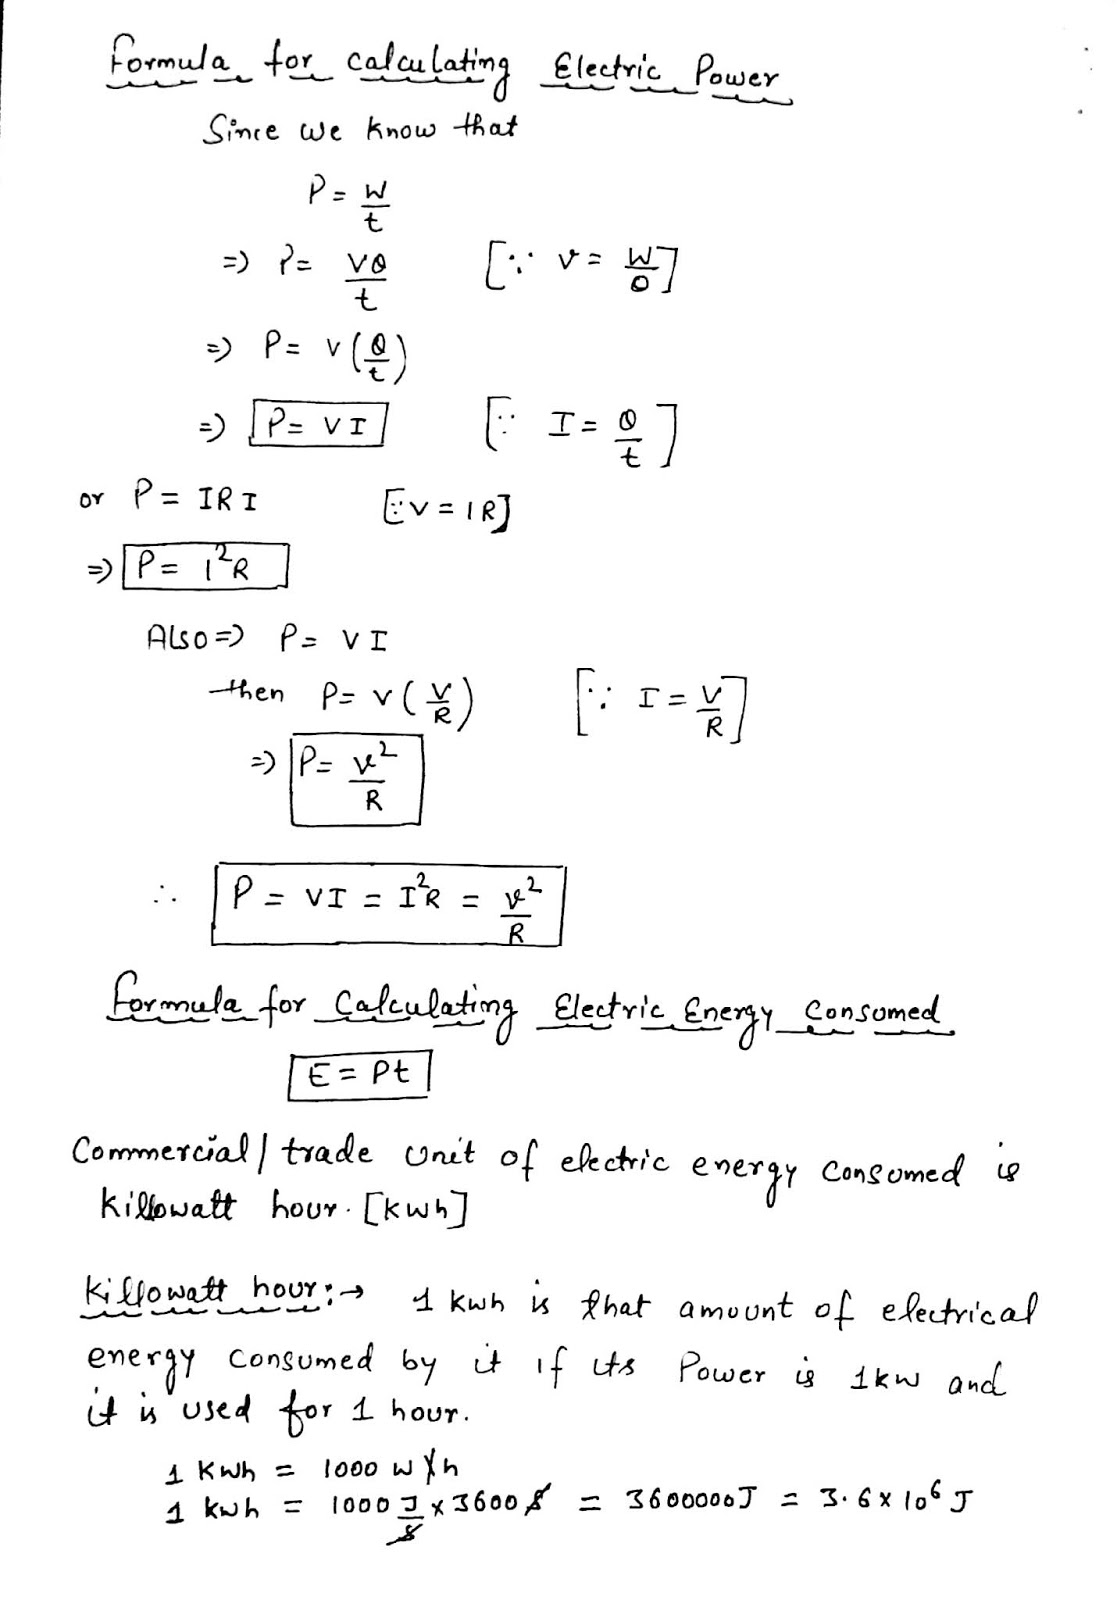 Formula for calculating Electric Power
Since we know that
P = W/t
=> P = VQ/t [∵ V = W/Q]
=> P = V(Q/t)
=> P = VI [∵ I = Q/t]
or P = IRI [∵ V = IR]
=> P = I²R
Also => P = VI
then P = V(V/R) [∵ I = V/R]
=> P = V²/R
∴ P = VI = I²R = V²/R
Formula for Calculating Electric Energy Consumed
E = Pt
Commercial / trade unit of electric energy consumed is
killowatt hour. [kwh]
Killowatt hour :→ 1 kwh is that amount of electrical
energy consumed by it if its Power is 1kw and
it is used for 1 hour.
1 Kwh = 1000 w x h
1 kwh = 1000 J/s x 3600 s = 3600000J = 3.6 x 10⁶ J